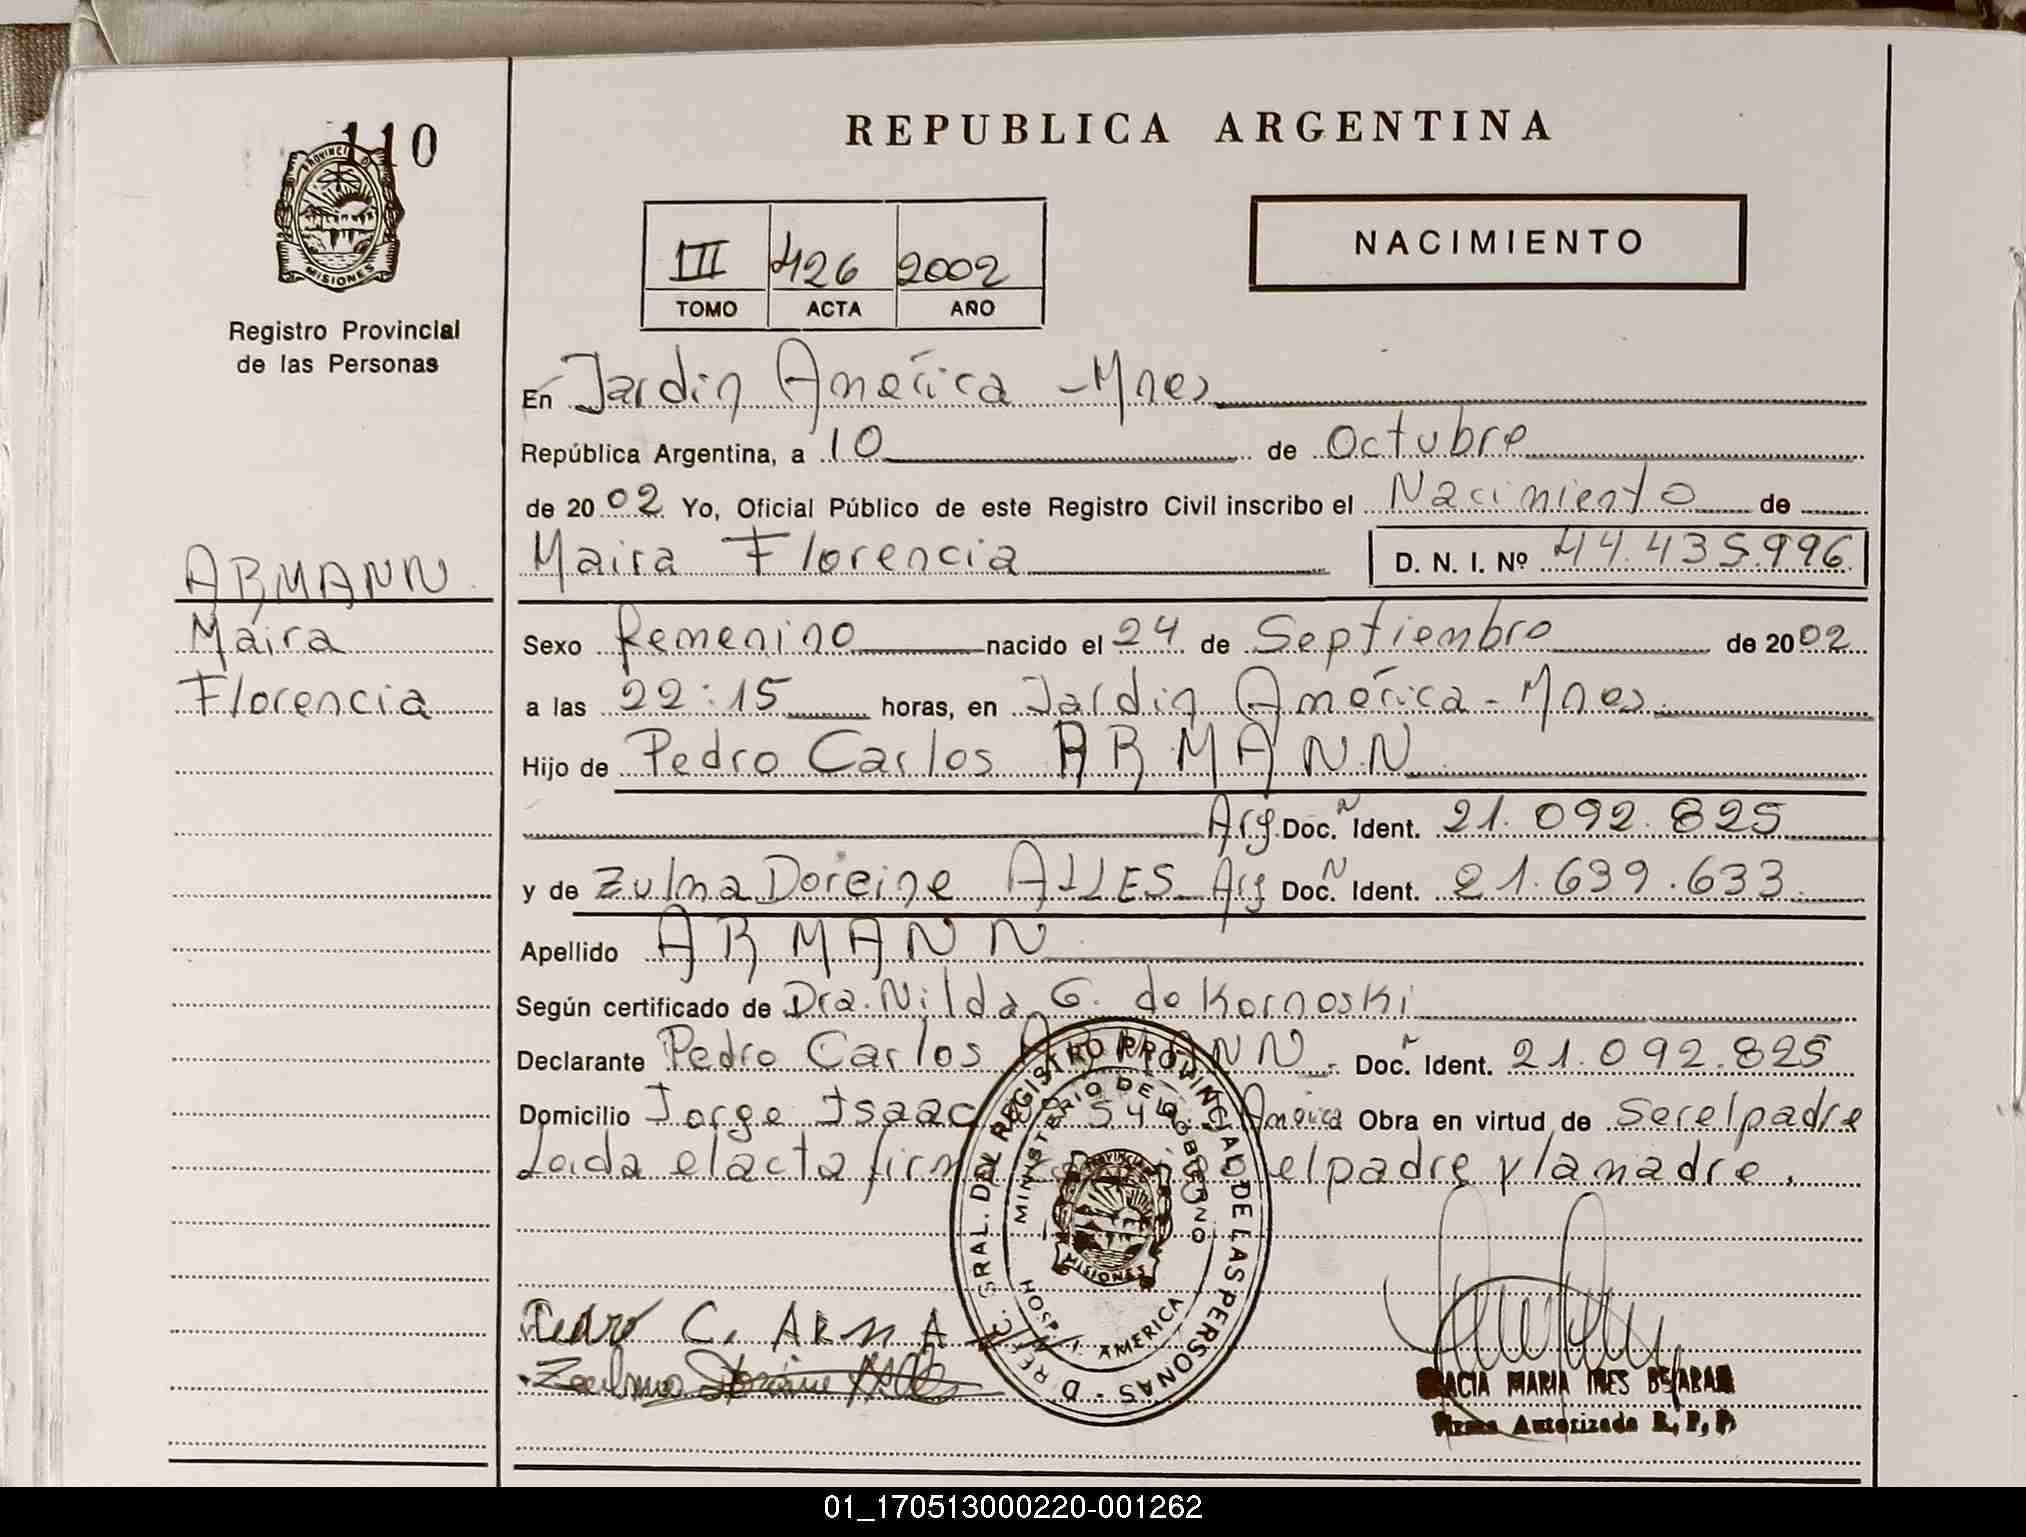 110
PROVINCIA D
MISIONES
Registro Provincial
de las Personas
ARMANN
Maira
Florencia
REPUBLICA ARGENTINA
III 426 2002
TOMO ACTA AÑO
NACIMIENTO
En Jardin América - Mnes
República Argentina, a 10 de Octubre
de 2002 Yo, Oficial Público de este Registro Civil inscribo el Nacimiento de
Maira Florencia D. N. I. Nº 44.435.996
Sexo femenino nacido el 24 de Septiembre de 2002
a las 22:15 horas, en Jardin América - Mnes
Hijo de Pedro Carlos ARMANN
Arg Doc. Ident. 21.092.825
y de Zulma Doreine ALLES Arg Doc. Ident. 21.639.633
Apellido ARMANN
Según certificado de Dra. Nilda G. de Kornoski
Declarante Pedro Carlos ARMANN Doc. Ident. 21.092.825
Domicilio Jorge Isaac América Obra en virtud de ser el padre
Leida el acta firm el padre y la madre.
Pedro C. ARMA
Zulma Doreine Alles
DIREC. GRAL. DEL REGISTRO PROVINCIAL DE LAS PERSONAS
MINISTERIO DE GOBIERNO
MISIONES
HOSP. J. AMERICA
MARIA INES
Firma Autorizada R. P. P.
01_170513000220-001262